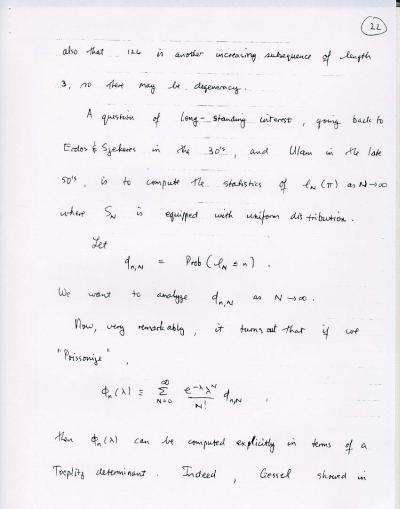 22
also that 124 is another increasing subsequence of length
3, so there may be degeneracy.
A question of long-standing interest, going back to
Erdos & Szekeres in the 30's, and Ulam in the late
50's, is to compute the statistics of ℓ_N(π) as N→∞
where S_N is equipped with uniform distribution.
Let
q_{n,N} = Prob(ℓ_N ≤ n).
We want to analyze q_{n,N} as N→∞.
Now, very remarkably, it turns out that if we
"Poissonize",
ϕ_n(λ) ≡ ∑_{N=0}^{∞} e^{-λ} λ^N / N! q_{n,N},
then ϕ_n(λ) can be computed explicitly in terms of a
Toeplitz determinant. Indeed, Gessel showed in